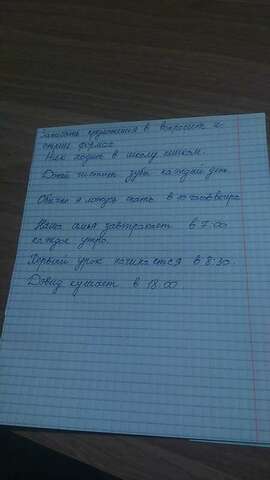 Записать предложения в вопросит и
отриц формах
Ник ходит в школу пешком.
Дэвид чистит зубы каждый день
Обычно я ложусь спать в 10 часов вечера
Наша семья завтракает в 7:00
каждое утро.
Первый урок начинается в 8:30.
Дэвид кушает в 18.00